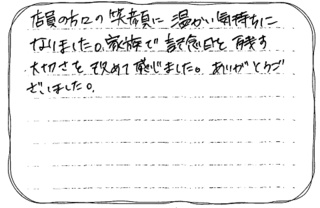 店員の方々の笑顔に温かい気持ちに
なりました。家族で記念日を残す
大切さを改めて感じました。ありがとうご
ざいました。